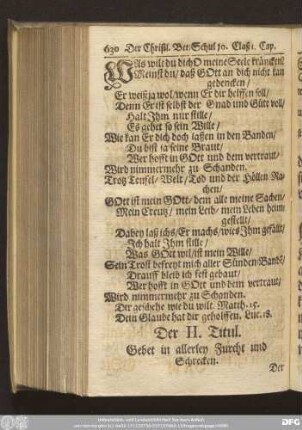 630 Der Christl. Bet-Schul 10. Claß 1. Cap.
WAs wilt du dich O meine Seele kräncken?
Meinst du / daß GOtt an dich nicht kan
gedencken /
Er weiß ja wol / wenn Er dir helffen soll /
Denn Er ist selbst der Gnad und Güte voll /
Halt Jhm nur stille /
Es gehet so sein Wille /
Wie kan Er dich doch lassen in den Banden /
Du bist ja seine Braut /
Wer hofft in GOtt und dem vertraut /
Wird nimmermehr zu Schanden.
Trotz Teufel / Welt / Tod und der Höllen Ra-
chen /
GOtt ist mein GOtt / dem alle meine Sachen /
Mein Creutz / mein Leib / mein Leben heim
gestellt /
Dabey laß ichs / Er machs / wies Jhm gefällt /
Jch halt Jhm stille /
Was GOtt wil / ist mein Wille /
Sein Trost befreyt mich aller Sünden-Band /
Drauff bleib ich fest gebaut /
Wer hofft in GOtt und dem vertraut /
Wird nimmermehr zu Schanden.
Dir geschehe wie du wilt. Matth. 15.
Dein Glaube hat dir geholffen. Luc. 18.
Der II. Titul.
Gebet in allerley Furcht und
Schrecken.
Der
DFG